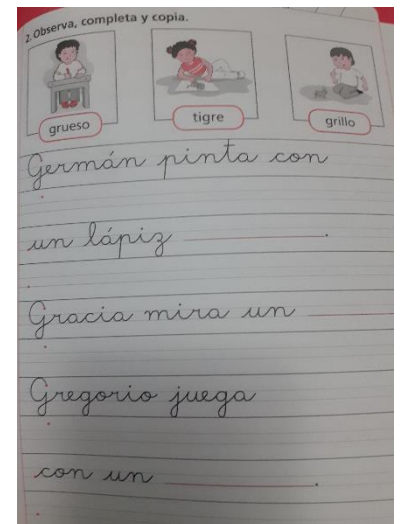 2. Observa, completa y copia.
grueso
tigre
grillo
Germán pinta con
un lápiz ____________.
Gracia mira un ______
Gregorio juega
con un ____________.